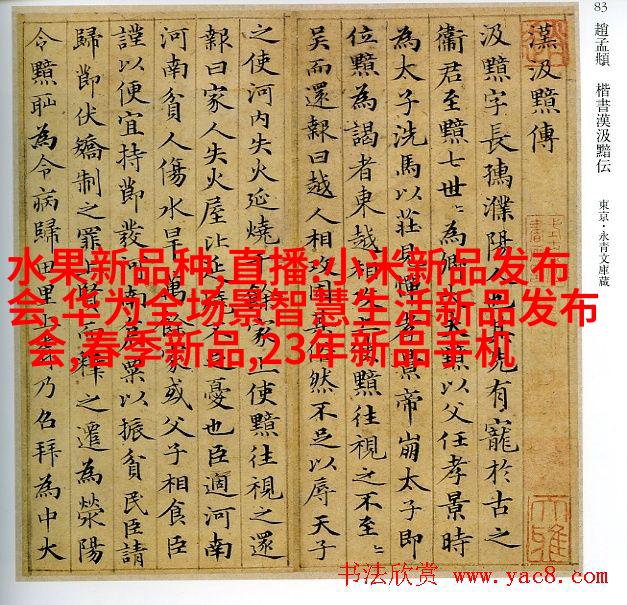 83 趙孟頫 楷書漢汲黯伝 東京・永青文庫蔵
漢汲黯傳
汲黯字長孺濮陽人也其先有寵於古之
衞君至黯七世〻為卿大夫黯以父任孝景時
為太子洗馬以莊見憚孝景帝崩太子即
位黯為謁者東越相攻上使黯往視之不至〻
吴而還報曰越人相攻固其俗然不足以辱天子
之使河内失火延燒千餘家上使黯往視之還
報曰家人失火屋比延燒不足憂也臣適河南
河南貧人傷水旱萬餘家或父子相食臣
謹以便宜持節發河南倉粟以振貧民臣請
歸節伏矯制之罪上賢而釋之遷為滎陽
令黯恥為令病歸田里上聞乃召拜為中大
水果新品种,直播:小米新品发布
会,华为全场景智慧生活新品发布
会,春季新品,23年新品手机
书法欣赏 www.yac8.com